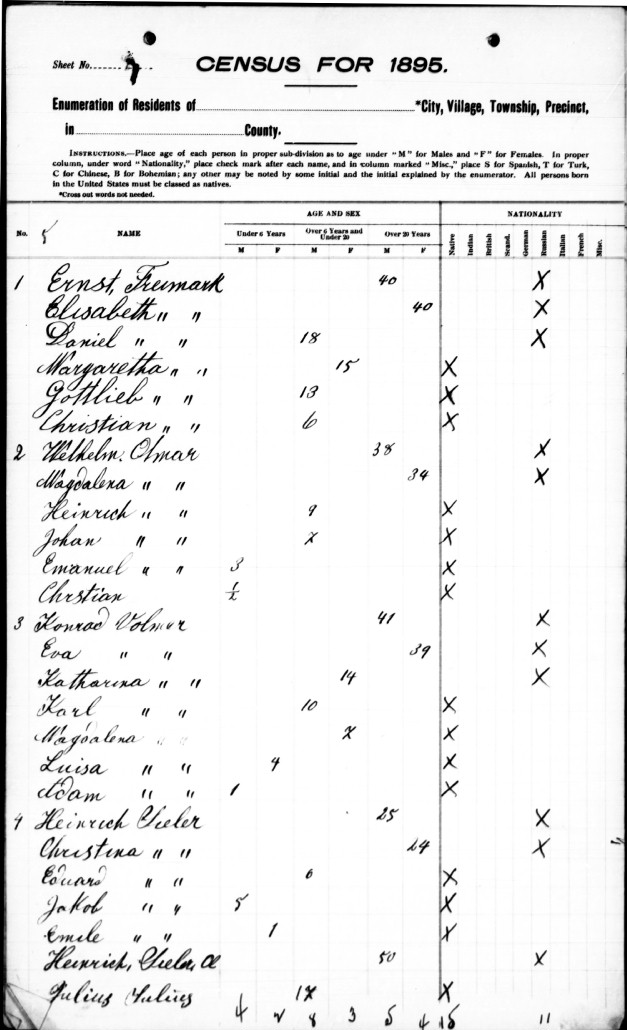 Sheet No. 7
CENSUS FOR 1895.
Enumeration of Residents of *City, Village, Township, Precinct,
in County.
INSTRUCTIONS.—Place age of each person in proper sub-division as to age under "M" for Males and "F" for Females. In proper
column, under word "Nationality," place check mark after each name, and in column marked "Misc.," place S for Spanish, T for Turk,
C for Chinese, B for Bohemian; any other may be noted by some initial and the initial explained by the enumerator. All persons born
in the United States must be classed as natives.
*Cross out words not needed.
AGE AND SEX NATIONALITY
No. 5 NAME Under 6 Years Over 6 Years and Under 20 Over 20 Years Native Indian British Scand. German Russian Italian French Misc.
M F M F M F
1 Ernst, Freimark 40 X
Elisabeth " " 40 X
Daniel " " 18 X
Margaretha " " 15 X
Gottlieb " " 13 X
Christian " " 6 X
2 Welhelm. Olmar 38 X
Magdalena " " 34 X
Heinrich " " 9 X
Johan " " 7 X
Emanuel " " 3 X
Chrstian 1/2 X
3 Konrad Volmer 41 X
Eva " " 39 X
Katharina " " 14 X
Karl " " 10 X
Magdalena " " 7 X
Luisa " " 4 X
Adam " " 1 X
4 Heinrich Sieler 25 X
Christina " " 24 X
Eduard " " 6 X
Jakob " " 5 X
Emile " " 1 X
Heinrich, Sieler, 50 X
Julius Julius 17 X
4 2 8 3 5 4 15 11